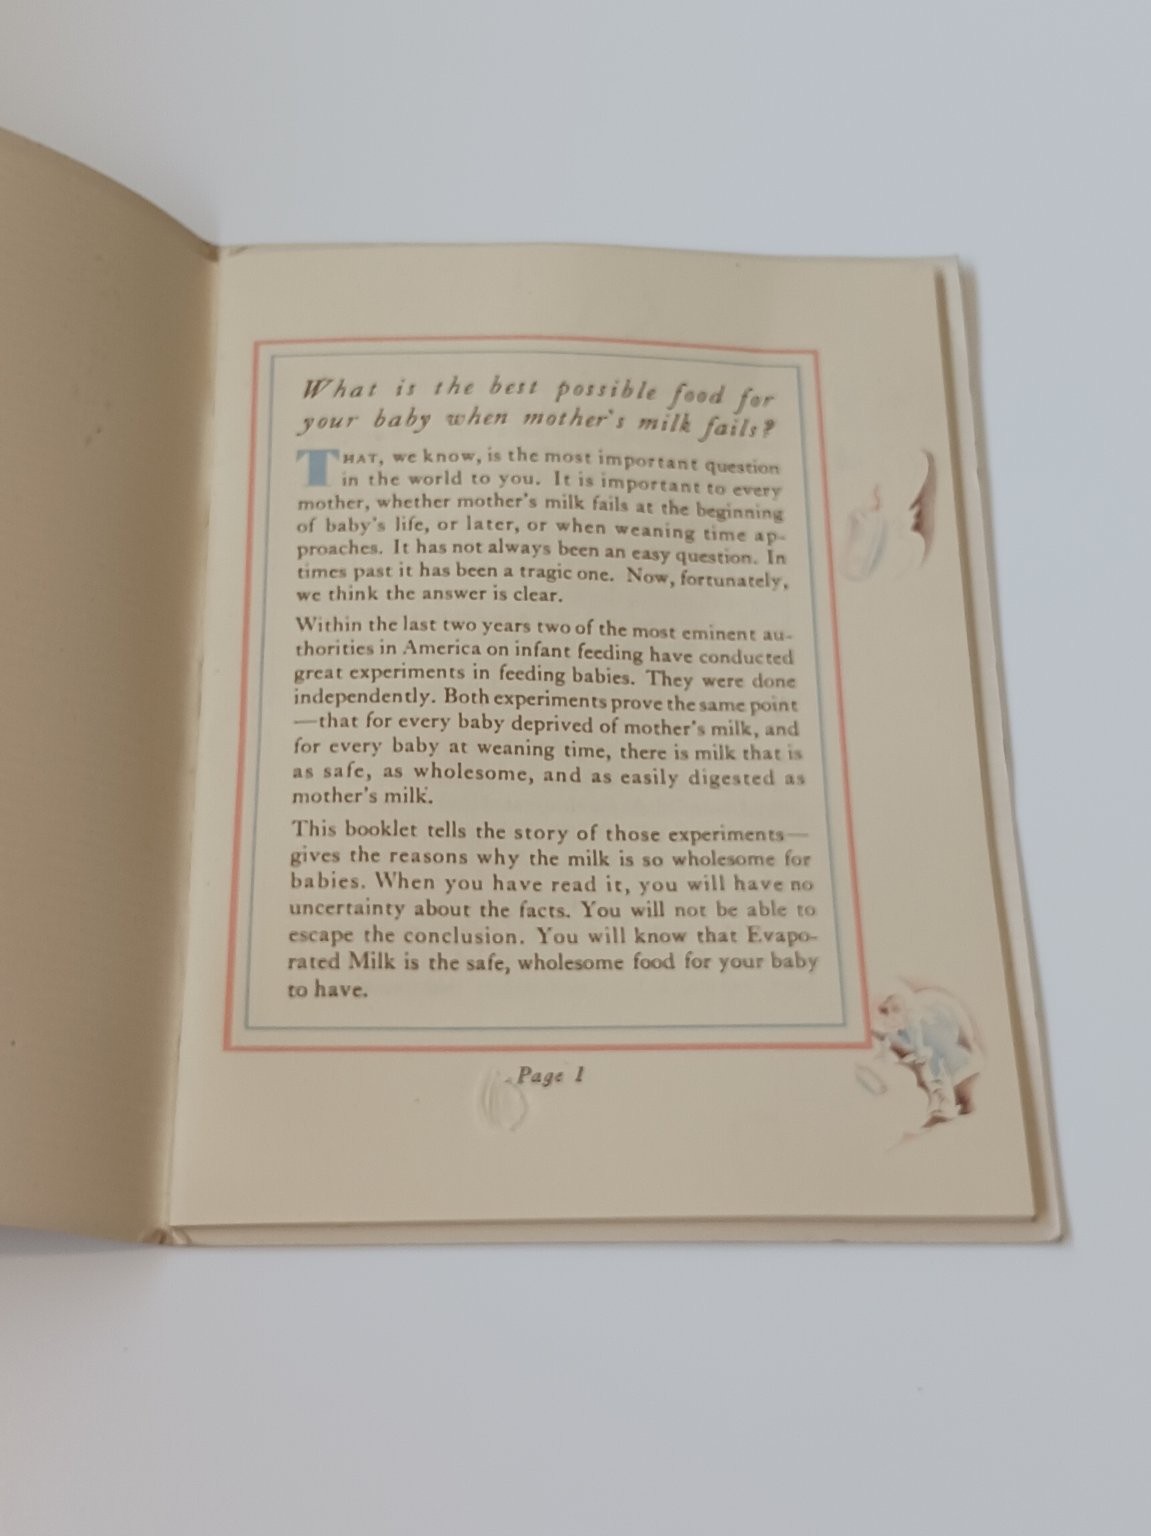 What is the best possible food for
your baby when mother's milk fails?
THAT, we know, is the most important question
in the world to you. It is important to every
mother, whether mother's milk fails at the beginning
of baby's life, or later, or when weaning time ap-
proaches. It has not always been an easy question. In
times past it has been a tragic one. Now, fortunately,
we think the answer is clear.
Within the last two years two of the most eminent au-
thorities in America on infant feeding have conducted
great experiments in feeding babies. They were done
independently. Both experiments prove the same point
—that for every baby deprived of mother's milk, and
for every baby at weaning time, there is milk that is
as safe, as wholesome, and as easily digested as
mother's milk.
This booklet tells the story of those experiments—
gives the reasons why the milk is so wholesome for
babies. When you have read it, you will have no
uncertainty about the facts. You will not be able to
escape the conclusion. You will know that Evapo-
rated Milk is the safe, wholesome food for your baby
to have.
Page 1